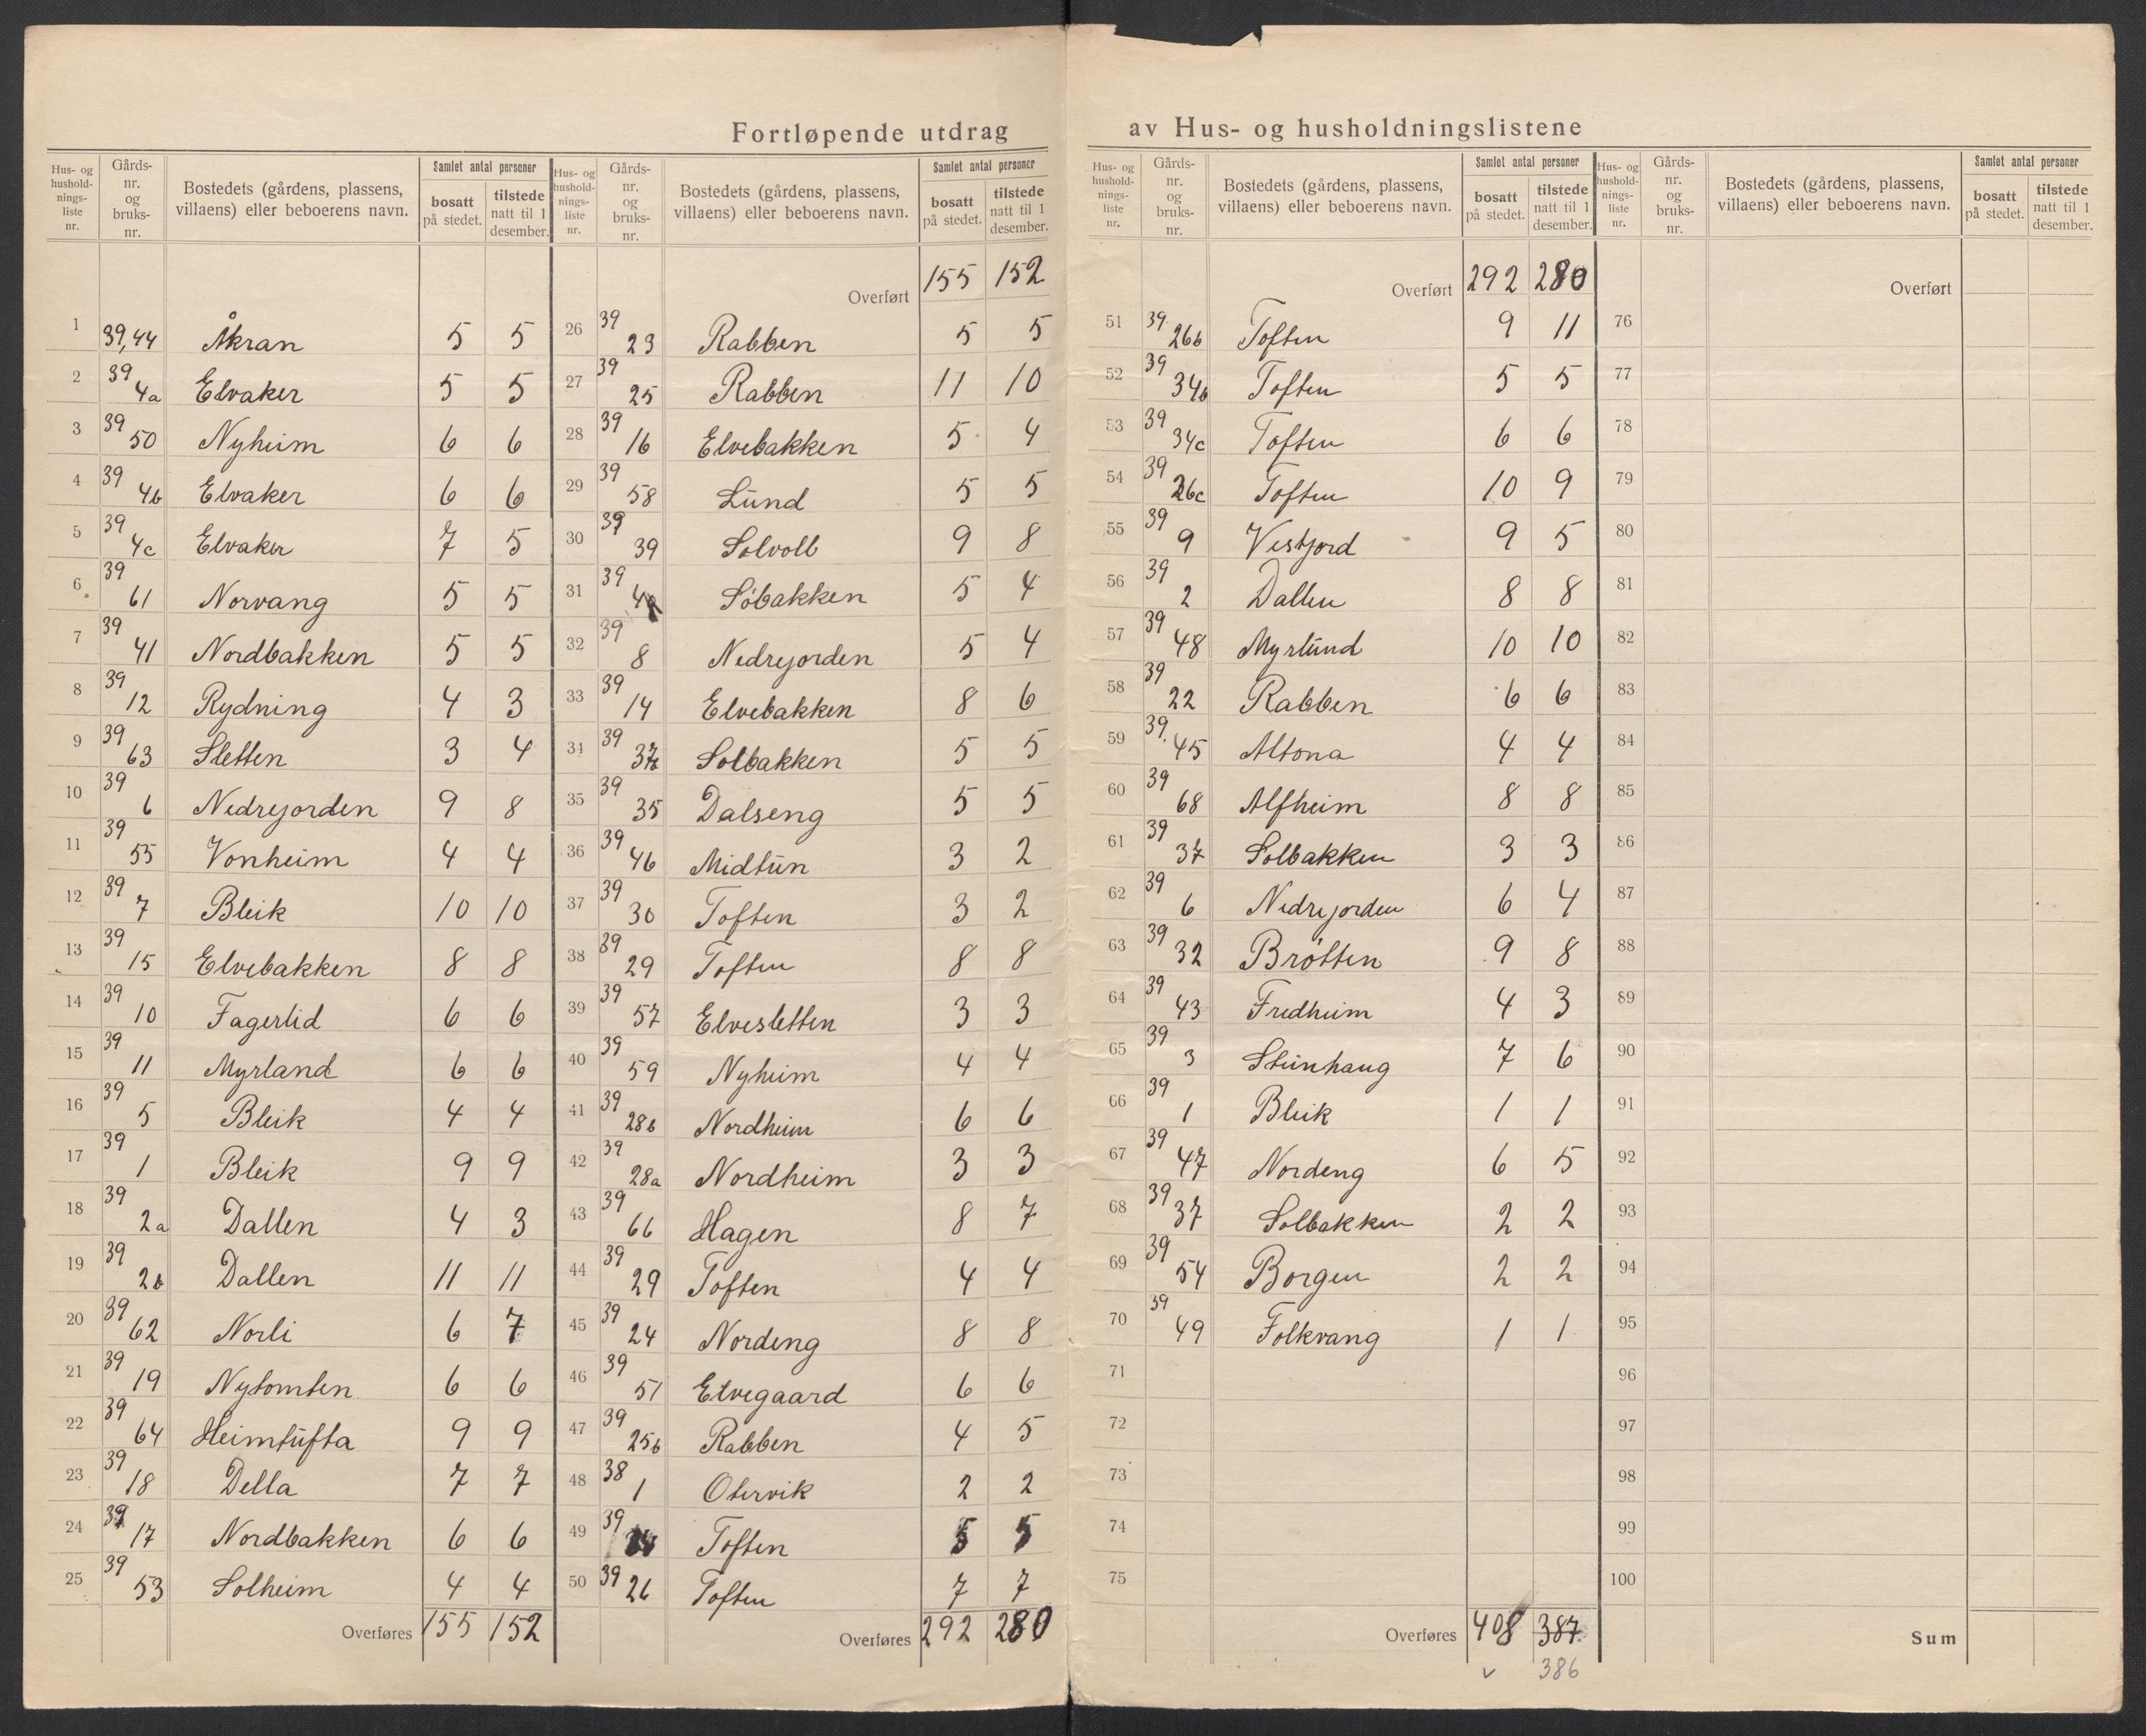 Fortløpende utdrag av Hus- og husholdningslistene
Hus- og husholdningsliste nr. Gårds-nr. og bruks-nr. Bostedets (gårdens, plassens, villaens) eller beboerens navn. Samlet antal personer bosatt på stedet. tilstede natt til 1 desember.
1 39,44 Åkran 5 5
2 39 4a Elvaker 5 5
3 39 50 Nyheim 6 6
4 39 4b Elvaker 6 6
5 39 4c Elvaker 7 5
6 39 61 Norvang 5 5
7 39 41 Nordbakken 5 5
8 39 12 Rydning 4 3
9 39 63 Sletten 3 4
10 39 6 Nedrejorden 9 8
11 39 55 Vonheim 4 4
12 39 7 Bleik 10 10
13 39 15 Elvebakken 8 8
14 39 10 Fagerlid 6 6
15 39 11 Myrland 6 6
16 39 5 Bleik 4 4
17 39 1 Bleik 9 9
18 39 2a Dallen 4 3
19 39 2b Dallen 11 11
20 39 62 Norli 6 7
21 39 19 Nytomten 6 6
22 39 64 Heimtufta 9 9
23 39 18 Della 7 7
24 39 17 Nordbakken 6 6
25 39 53 Solheim 4 4
Overføres 155 152
Hus- og husholdningsliste nr. Gårds-nr. og bruks-nr. Bostedets (gårdens, plassens, villaens) eller beboerens navn. Samlet antal personer bosatt på stedet. tilstede natt til 1 desember.
Overført 155 152
26 39 23 Rabben 5 5
27 39 25 Rabben 11 10
28 39 16 Elvebakken 5 4
29 39 58 Lund 5 5
30 39 39 Solvoll 9 8
31 39 Söbakken 5 4
32 39 8 Nedrejorden 5 4
33 39 14 Elvebakken 8 6
34 39 Solbakken 5 5
35 39 35 Dalseng 5 5
36 39 46 Midtun 3 2
37 39 30 Toften 3 2
38 39 29 Toften 8 8
39 39 57 Elvesletten 3 3
40 39 59 Nyheim 4 4
41 39 28b Nordheim 6 6
42 39 28a Nordheim 3 3
43 39 66 Hagen 8 7
44 39 29 Toften 4 4
45 39 24 Nordeng 8 8
46 39 51 Elvegaard 6 6
47 39 25b Rabben 4 5
48 38 1 Otervik 2 2
49 39 Toften 5 5
50 39 26 Toften 7 7
Overføres 292 280
Hus- og husholdningsliste nr. Gårds-nr. og bruks-nr. Bostedets (gårdens, plassens, villaens) eller beboerens navn. Samlet antal personer bosatt på stedet. tilstede natt til 1 desember.
Overført 292 280
51 39 26b Toften 9 11
52 39 34b Toften 5 5
53 39 34c Toften 6 6
54 39 26c Toften 10 9
55 39 9 Vestjord 9 5
56 39 2 Dallen 8 8
57 39 48 Myrlund 10 10
58 39 22 Rabben 6 6
59 39 45 Altona 4 4
60 39 68 Alfheim 8 8
61 39 37 Solbakken 3 3
62 39 6 Nedrejorden 6 4
63 39 32 Brötten 9 8
64 39 43 Fredheim 4 3
65 39 3 Steinhaug 7 6
66 39 1 Bleik 1 1
67 39 47 Nordeng 6 5
68 39 37 Solbakken 2 2
69 39 54 Borgen 2 2
70 39 49 Folkvang 1 1
71
72
73
74
75
Overføres 408 387
386
Hus- og husholdningsliste nr. Gårds-nr. og bruks-nr. Bostedets (gårdens, plassens, villaens) eller beboerens navn. Samlet antal personer bosatt på stedet. tilstede natt til 1 desember.
Overført
76
77
78
79
80
81
82
83
84
85
86
87
88
89
90
91
92
93
94
95
96
97
98
99
100
Sum